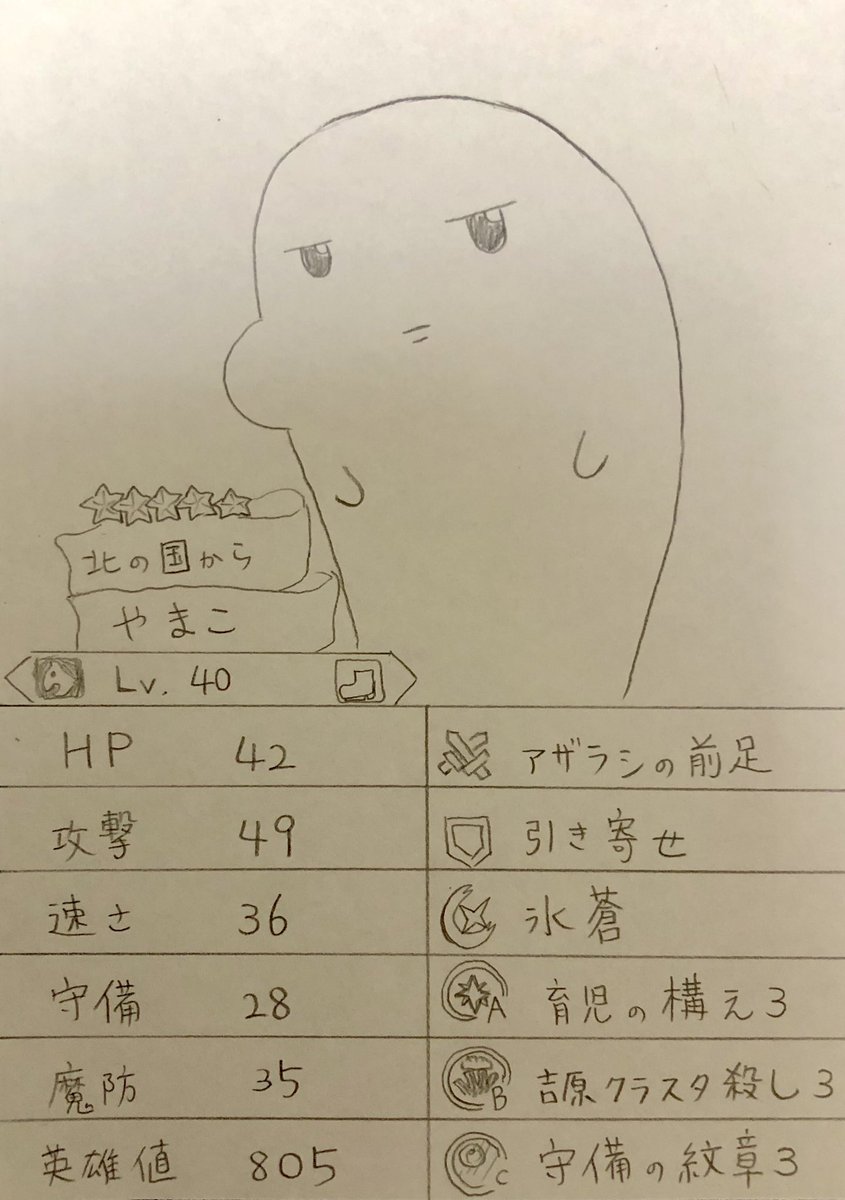 北の国から
やまこ
Lv. 40
HP 42
攻撃 49
速さ 36
守備 28
魔防 35
英雄値 805
アザラシの前足
引き寄せ
氷蒼
A 育児の構え3
B 吉原クラスタ殺し3
C 守備の紋章3